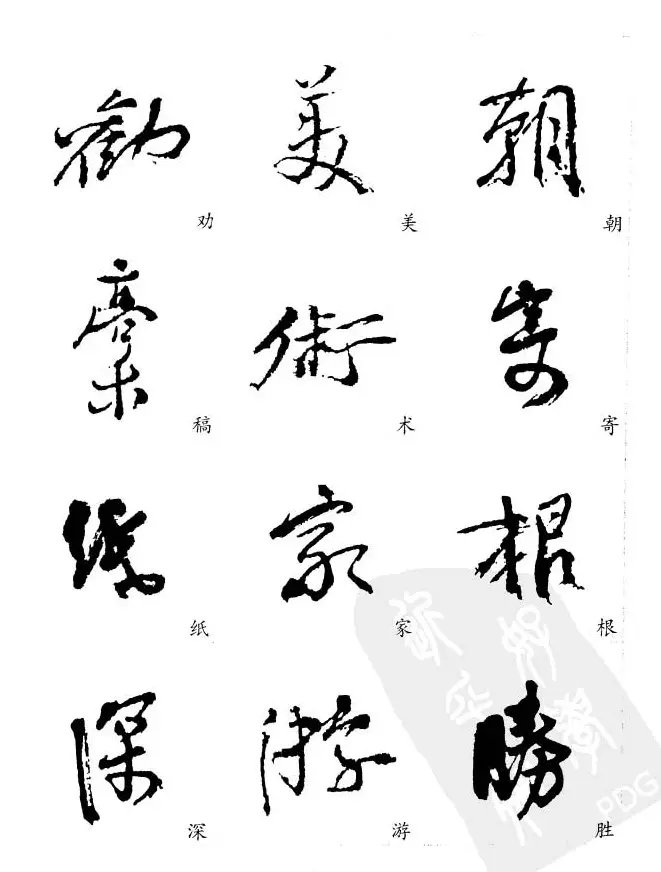 勸 美 朝
劝 美 朝
稾 術 寄
稿 术 寄
紙 家 根
纸 家 根
深 游 勝
深 游 胜
PDG